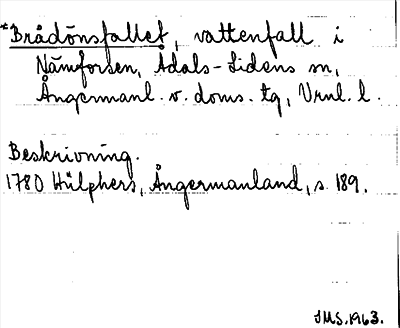 *Brådönsfallet, vattenfall i
Nämforsen, Ådals-Lidens sn,
Ångermanl. v. doms. tg, Vrnl. l.
Beskrivning.
1780 Hülphers, Ångermanland, s. 189.
JMS. 1963.